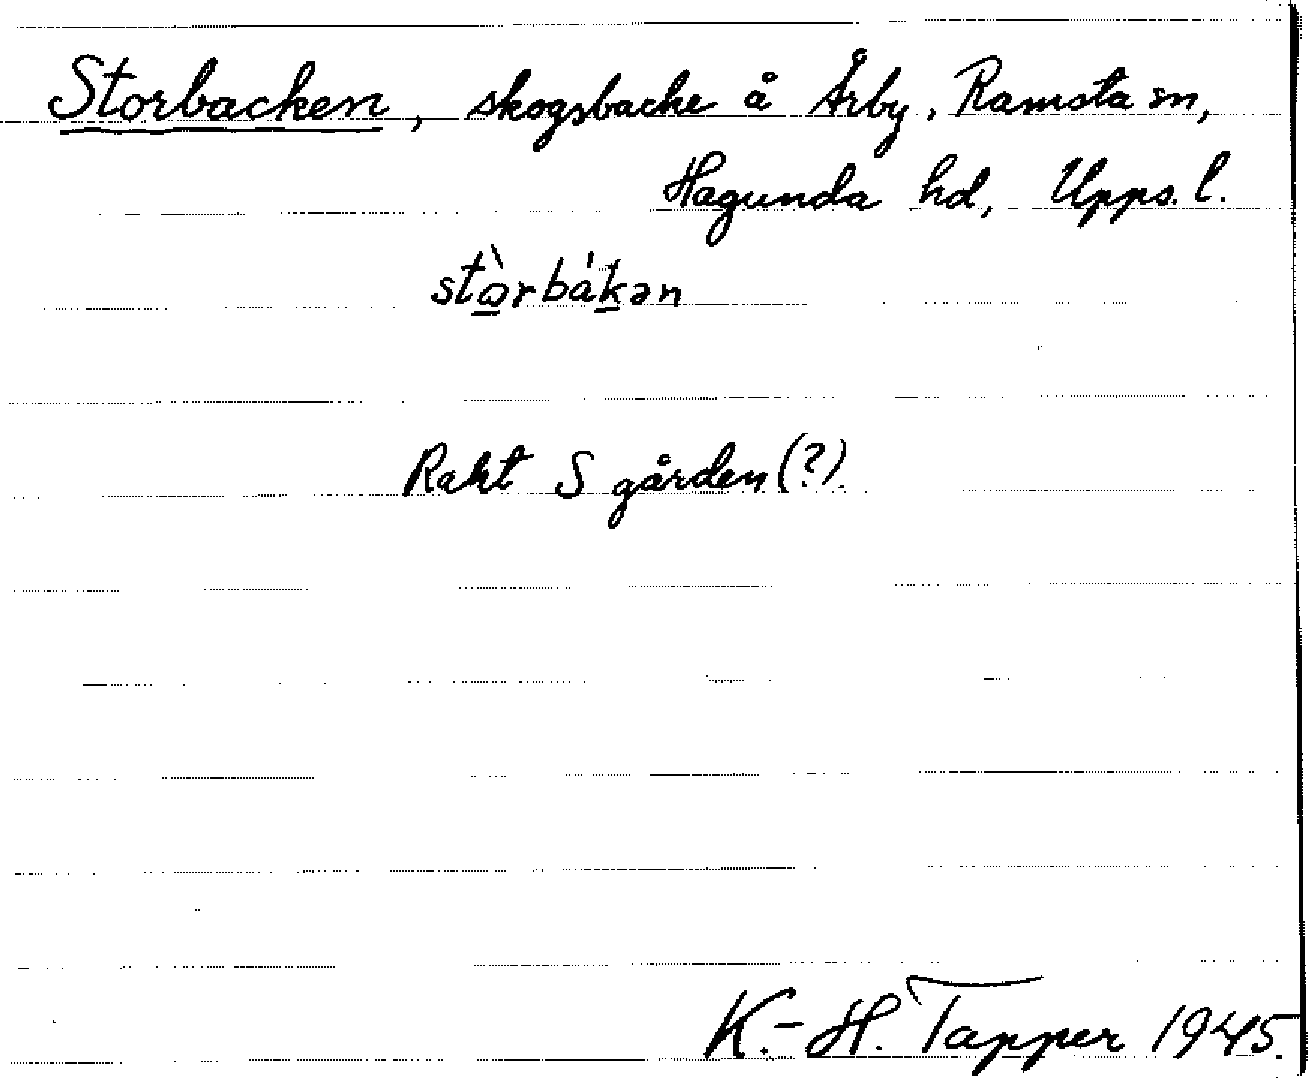 Storbacken, skogsbacke å Årby, Ramsta sn,
Hagunda hd, Upps. l.
stò̱rbáḵən
Rakt S gården (?).
K.-H. Tapper 1945.